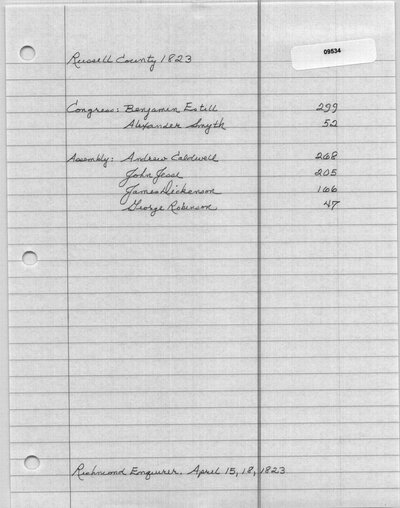 Russell County 1823
09534
Congress: Benjamin Estill 299
Alexander Smyth 52
Assembly: Andrew Caldwell 268
John Jesse 205
James Dickenson 166
George Robinson 47
Richmond Enquirer. April 15, 18, 1823